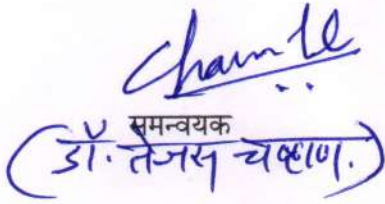 समन्वयक
(डॉ. तेजस चव्हाण.)